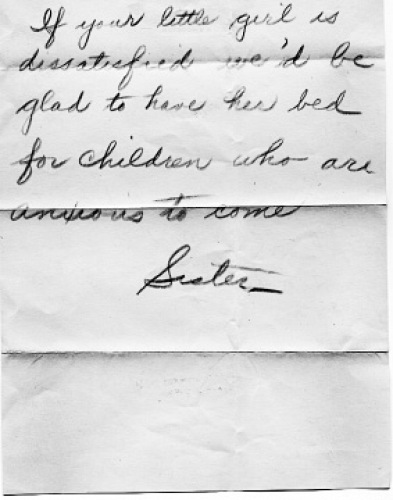 If your little girl is
dissatisfied we'd be
glad to have her bed
for children who are
anxious to come
Sister